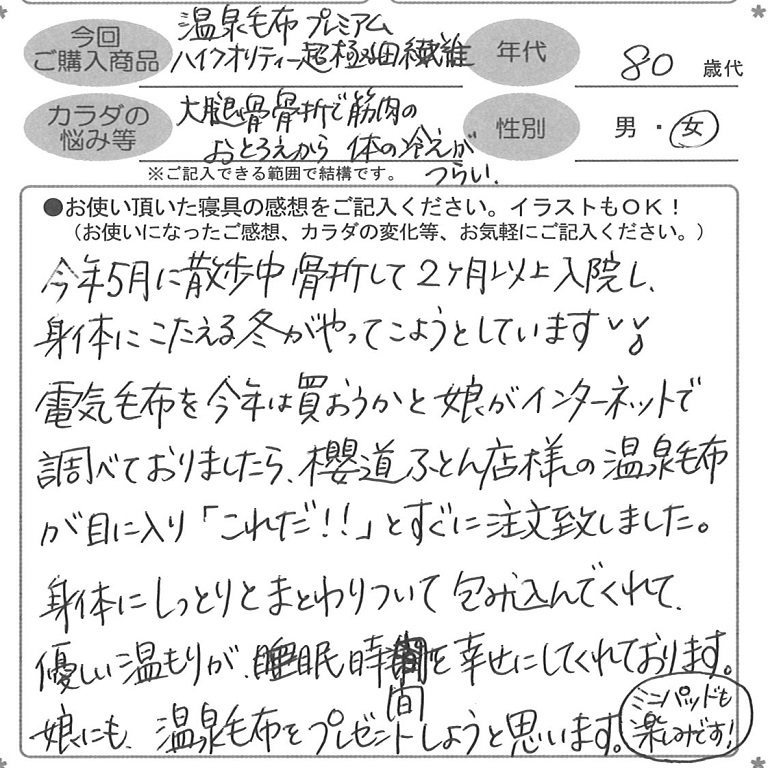 今回
ご購入商品
温泉毛布 プレミアム
ハイクオリティー超極細繊維
年代
80 歳代
カラダの
悩み等
大腿骨骨折で筋肉の
おとろえから 体の冷えが
つらい.
性別
男・女
※ご記入できる範囲で結構です。
●お使い頂いた寝具の感想をご記入ください。イラストもOK!
(お使いになったご感想、カラダの変化等、お気軽にご記入ください。)
今年5月に散歩中骨折して2ヶ月以上入院し、
身体にこたえる冬がやってこようとしています
電気毛布を今年は買おうかと娘がインターネットで
調べておりましたら、櫻道ふとん店様の温泉毛布
が目に入り「これだ!!」とすぐに注文致しました。
身体にしっとりとまとわりついて包み込んでくれて、
優しい温もりが、睡眠時間を幸せにしてくれております。
娘にも、温泉毛布をプレゼントしようと思います。
ミニパッドも
楽しみです!